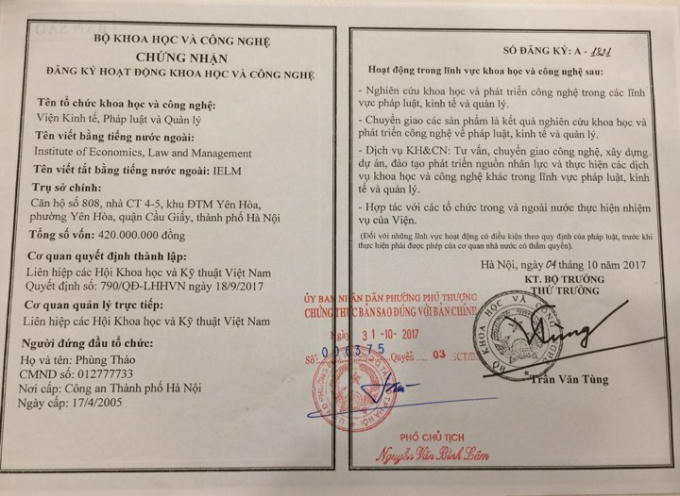 BỘ KHOA HỌC VÀ CÔNG NGHỆ
CHỨNG NHẬN
ĐĂNG KÝ HOẠT ĐỘNG KHOA HỌC VÀ CÔNG NGHỆ
Tên tổ chức khoa học và công nghệ:
Viện Kinh tế, Pháp luật và Quản lý
Tên viết bằng tiếng nước ngoài:
Institute of Economics, Law and Management
Tên viết tắt bằng tiếng nước ngoài: IELM
Trụ sở chính:
Căn hộ số 808, nhà CT 4-5, khu ĐTM Yên Hòa,
phường Yên Hòa, quận Cầu Giấy, thành phố Hà Nội
Tổng số vốn: 420.000.000 đồng
Cơ quan quyết định thành lập:
Liên hiệp các Hội Khoa học và Kỹ thuật Việt Nam
Quyết định số: 790/QĐ-LHHVN ngày 18/9/2017
Cơ quan quản lý trực tiếp:
Liên hiệp các Hội Khoa học và Kỹ thuật Việt Nam
Người đứng đầu tổ chức:
Họ và tên: Phùng Thảo
CMND số: 012777733
Nơi cấp: Công an Thành phố Hà Nội
Ngày cấp: 17/4/2005
SỐ ĐĂNG KÝ: A - 1821
Hoạt động trong lĩnh vực khoa học và công nghệ sau:
- Nghiên cứu khoa học và phát triển công nghệ trong các lĩnh
vực pháp luật, kinh tế và quản lý.
- Chuyển giao các sản phẩm là kết quả nghiên cứu khoa học và
phát triển công nghệ về pháp luật, kinh tế và quản lý.
- Dịch vụ KH&CN: Tư vấn, chuyển giao công nghệ, xây dựng
dự án, đào tạo phát triển nguồn nhân lực và thực hiện các dịch
vụ khoa học và công nghệ khác trong lĩnh vực pháp luật, kinh
tế và quản lý.
- Hợp tác với các tổ chức trong và ngoài nước thực hiện nhiệm
vụ của Viện.
(Đối với những lĩnh vực hoạt động có điều kiện theo quy định của pháp luật, trước khi
thực hiện phải được phép của cơ quan nhà nước có thẩm quyền).
Hà Nội, ngày 04 tháng 10 năm 2017
KT. BỘ TRƯỞNG
THỨ TRƯỞNG
BỘ KHOA HỌC VÀ CÔNG NGHỆ
Trần Văn Tùng
ỦY BAN NHÂN DÂN PHƯỜNG PHÚ THƯỢNG
CHỨNG THỰC BẢN SAO ĐÚNG VỚI BẢN CHÍNH
Ngày 31-10-2017
Số: 006375 Quyển: 03 SCT/B
PHÓ CHỦ TỊCH
Nguyễn Văn Bình Lâm